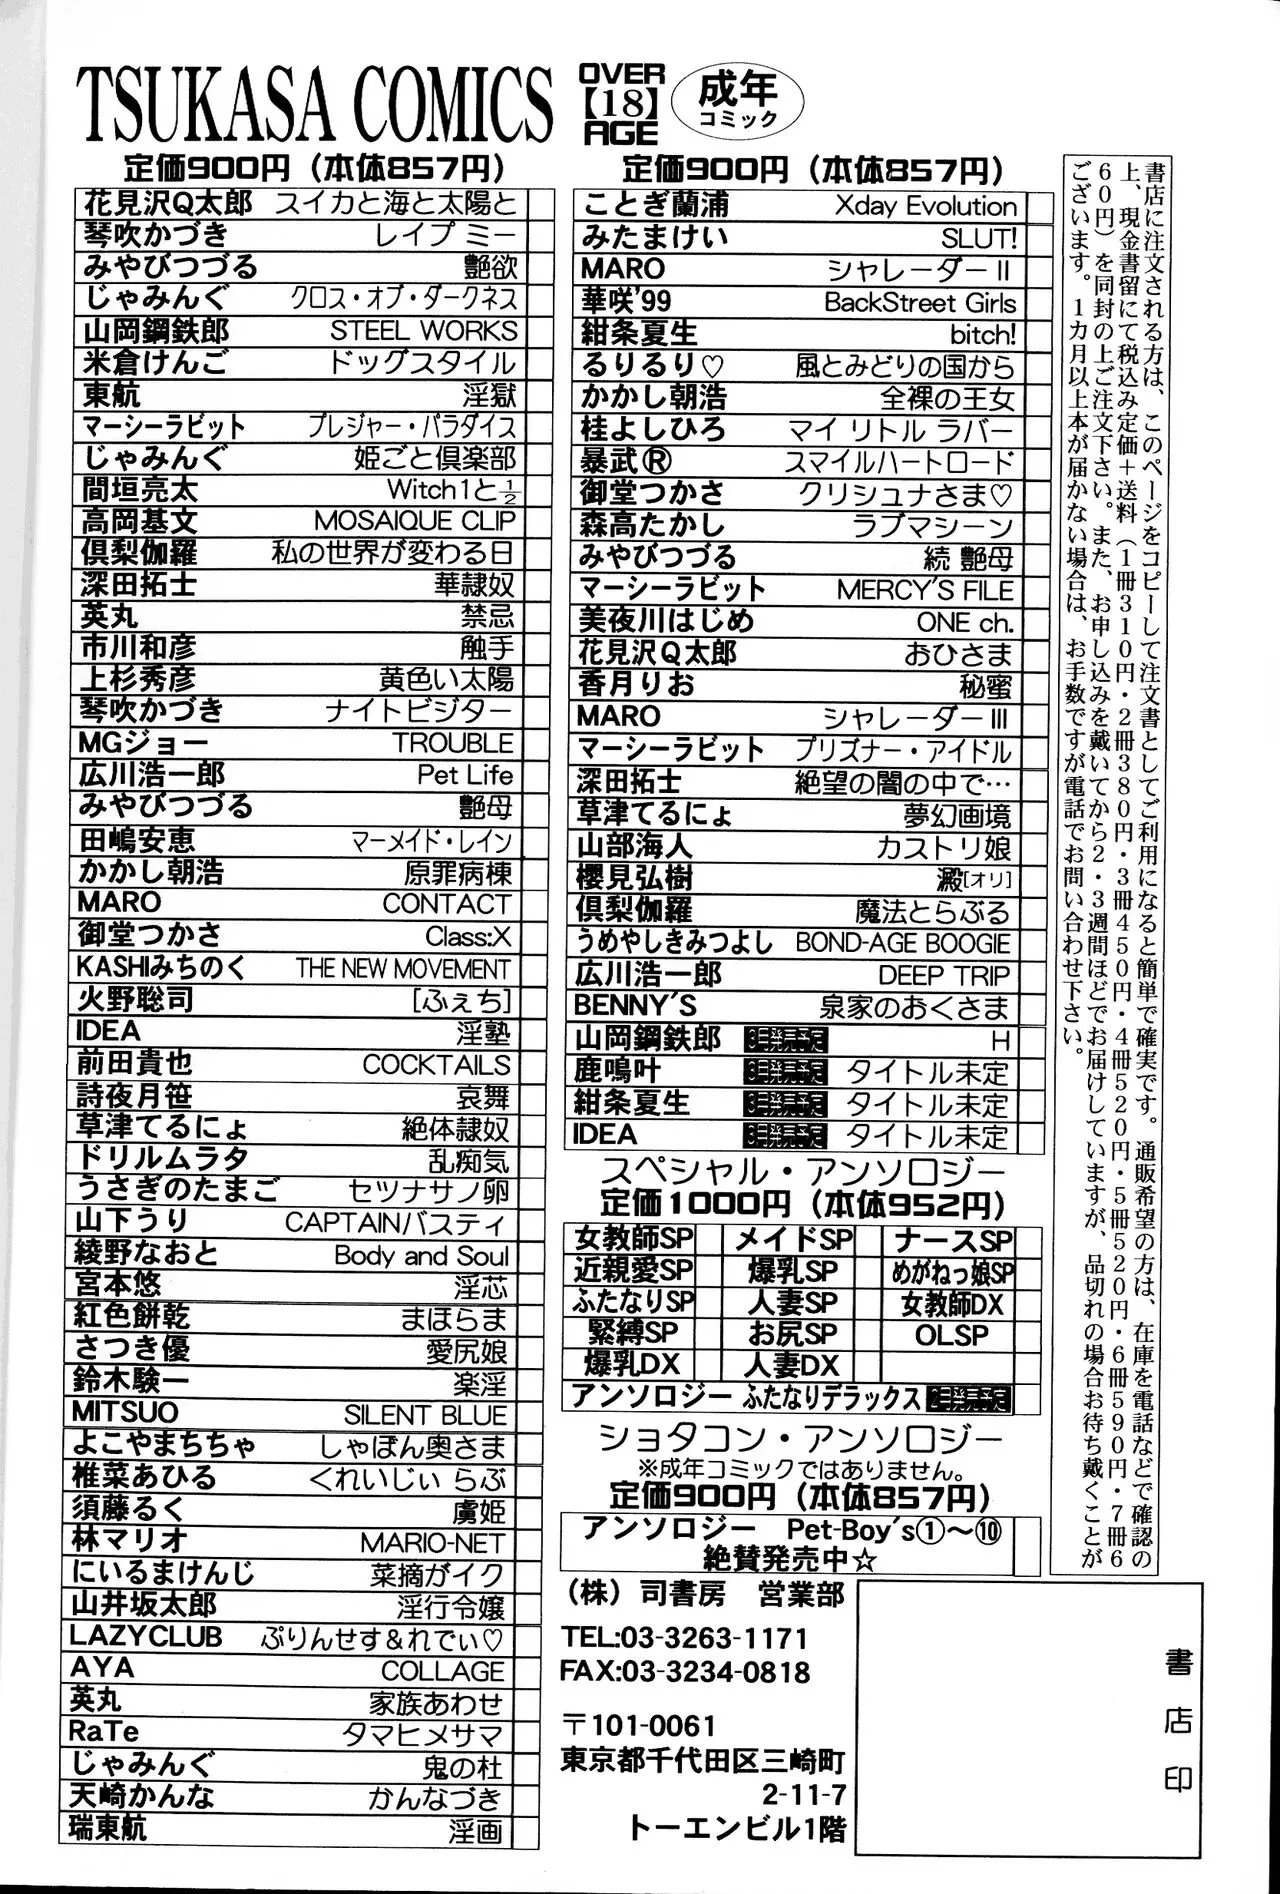 TSUKASA COMICS
OVER
【18】
AGE
成年
コミック
定価900円（本体857円）
花見沢Q太郎 スイカと海と太陽と
琴吹かづき レイプ ミー
みやびつづる 艶欲
じゃみんぐ クロス・オブ・ダークネス
山岡鋼鉄郎 STEEL WORKS
米倉けんご ドッグスタイル
東航 淫獄
マーシーラビット プレジャー・パラダイス
じゃみんぐ 姫ごと倶楽部
間垣亮太 Witch1と½
高岡基文 MOSAIQUE CLIP
倶梨伽羅 私の世界が変わる日
深田拓士 華隷奴
英丸 禁忌
市川和彦 触手
上杉秀彦 黄色い太陽
琴吹かづき ナイトビジター
MGジョー TROUBLE
広川浩一郎 Pet Life
みやびつづる 艶母
田嶋安恵 マーメイド・レイン
かかし朝浩 原罪病棟
MARO CONTACT
御堂つかさ Class:X
KASHIみちのく THE NEW MOVEMENT
火野聡司 [ふぇち]
IDEA 淫塾
前田貴也 COCKTAILS
詩夜月笹 哀舞
草津てるにょ 絶体隷奴
ドリルムラタ 乱痴気
うさぎのたまご セツナサノ卵
山下うり CAPTAINバスティ
綾野なおと Body and Soul
宮本悠 淫芯
紅色餅乾 まほらま
さつき優 愛尻娘
鈴木験一 楽淫
MITSUO SILENT BLUE
よこやまちちゃ しゃぼん奥さま
椎菜あひる くれいじぃ らぶ
須藤るく 虜姫
林マリオ MARIO-NET
にいるまけんじ 菜摘がイク
山井坂太郎 淫行令嬢
LAZYCLUB ぷりんせす＆れでぃ♡
AYA COLLAGE
英丸 家族あわせ
RaTe タマヒメサマ
じゃみんぐ 鬼の杜
天崎かんな かんなづき
瑞東航 淫画
定価900円（本体857円）
ことぎ蘭浦 Xday Evolution
みたまけい SLUT!
MARO シャレーダーⅡ
華咲'99 BackStreet Girls
紺条夏生 bitch!
るりるり♡ 風とみどりの国から
かかし朝浩 全裸の王女
桂よしひろ マイ リトル ラバー
暴武® スマイルハートロード
御堂つかさ クリシュナさま♡
森高たかし ラブマシーン
みやびつづる 続 艶母
マーシーラビット MERCY'S FILE
美夜川はじめ ONE ch.
花見沢Q太郎 おひさま
香月りお 秘蜜
MARO シャレーダーⅢ
マーシーラビット プリズナー・アイドル
深田拓士 絶望の闇の中で…
草津てるにょ 夢幻画境
山部海人 カストリ娘
櫻見弘樹 澱[オリ]
倶梨伽羅 魔法とらぶる
うめやしきみつよし BOND-AGE BOOGIE
広川浩一郎 DEEP TRIP
BENNY'S 泉家のおくさま
山岡鋼鉄郎 3月発売予定 H
鹿鳴叶 3月発売予定 タイトル未定
紺条夏生 3月発売予定 タイトル未定
IDEA 3月発売予定 タイトル未定
スペシャル・アンソロジー
定価1000円（本体952円）
女教師SP メイドSP ナースSP
近親愛SP 爆乳SP めがねっ娘SP
ふたなりSP 人妻SP 女教師DX
緊縛SP お尻SP OLSP
爆乳DX 人妻DX
アンソロジー ふたなりデラックス 2月発売予定
ショタコン・アンソロジー
※成年コミックではありません。
定価900円（本体857円）
アンソロジー Pet-Boy's①～⑩
絶賛発売中☆
（株）司書房 営業部
TEL:03-3263-1171
FAX:03-3234-0818
〒101-0061
東京都千代田区三崎町
2-11-7
トーエンビル1階
書店に注文される方は、このページをコピーして注文書としてご利用になると簡単で確実です。通販希望の方は、在庫を電話などで確認の
上、現金書留にて税込み定価＋送料（1冊310円・2冊380円・3冊450円・4冊520円・5冊520円・6冊590円・7冊6
60円）を同封の上ご注文下さい。また、お申し込みを戴いてから2・3週間ほどでお届けしていますが、品切れの場合お待ち戴くことが
ございます。1カ月以上本が届かない場合は、お手数ですが電話でお問い合わせ下さい。
書店印